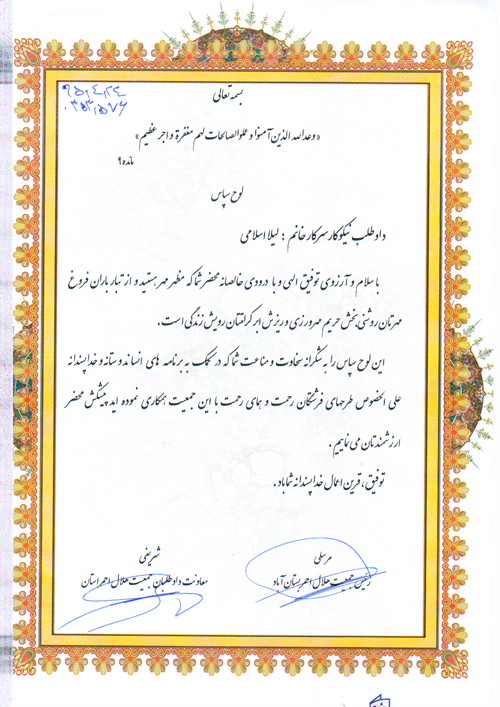 بسمه تعالی
۹۵,۴,۲۴
«وعدالله الذین آمنوا و عملوا الصالحات لهم مغفرة و اجر عظیم»
مائده ۹
لوح سپاس
داوطلب نیکوکار سرکار خانم : لیلا اسلامی
با سلام و آرزوی توفیق الهی و با درودی خالصانه محضر شما که مظهر مهر هستید و از تبار باران فروغ
مهرتان روشنی بخش حریم مهرورزی و ریزش ابر کرامتتان رویش زندگی است.
این لوح سپاس را به شکرانه سخاوت و مناعت شما که در کمک به برنامه های انساندوستانه و خداپسندانه
علی الخصوص طرحهای فرشتگان رحمت و همای رحمت با این جمعیت همکاری نموده اید پیشکش محضر
ارزشمندتان می نماییم .
توفیق، قرین اعمال خداپسندانه شما باد .
مرسلی
رئیس جمعیت هلال احمر بستان آباد
شریفی
معاونت داوطلبان جمعیت هلال احمر استان